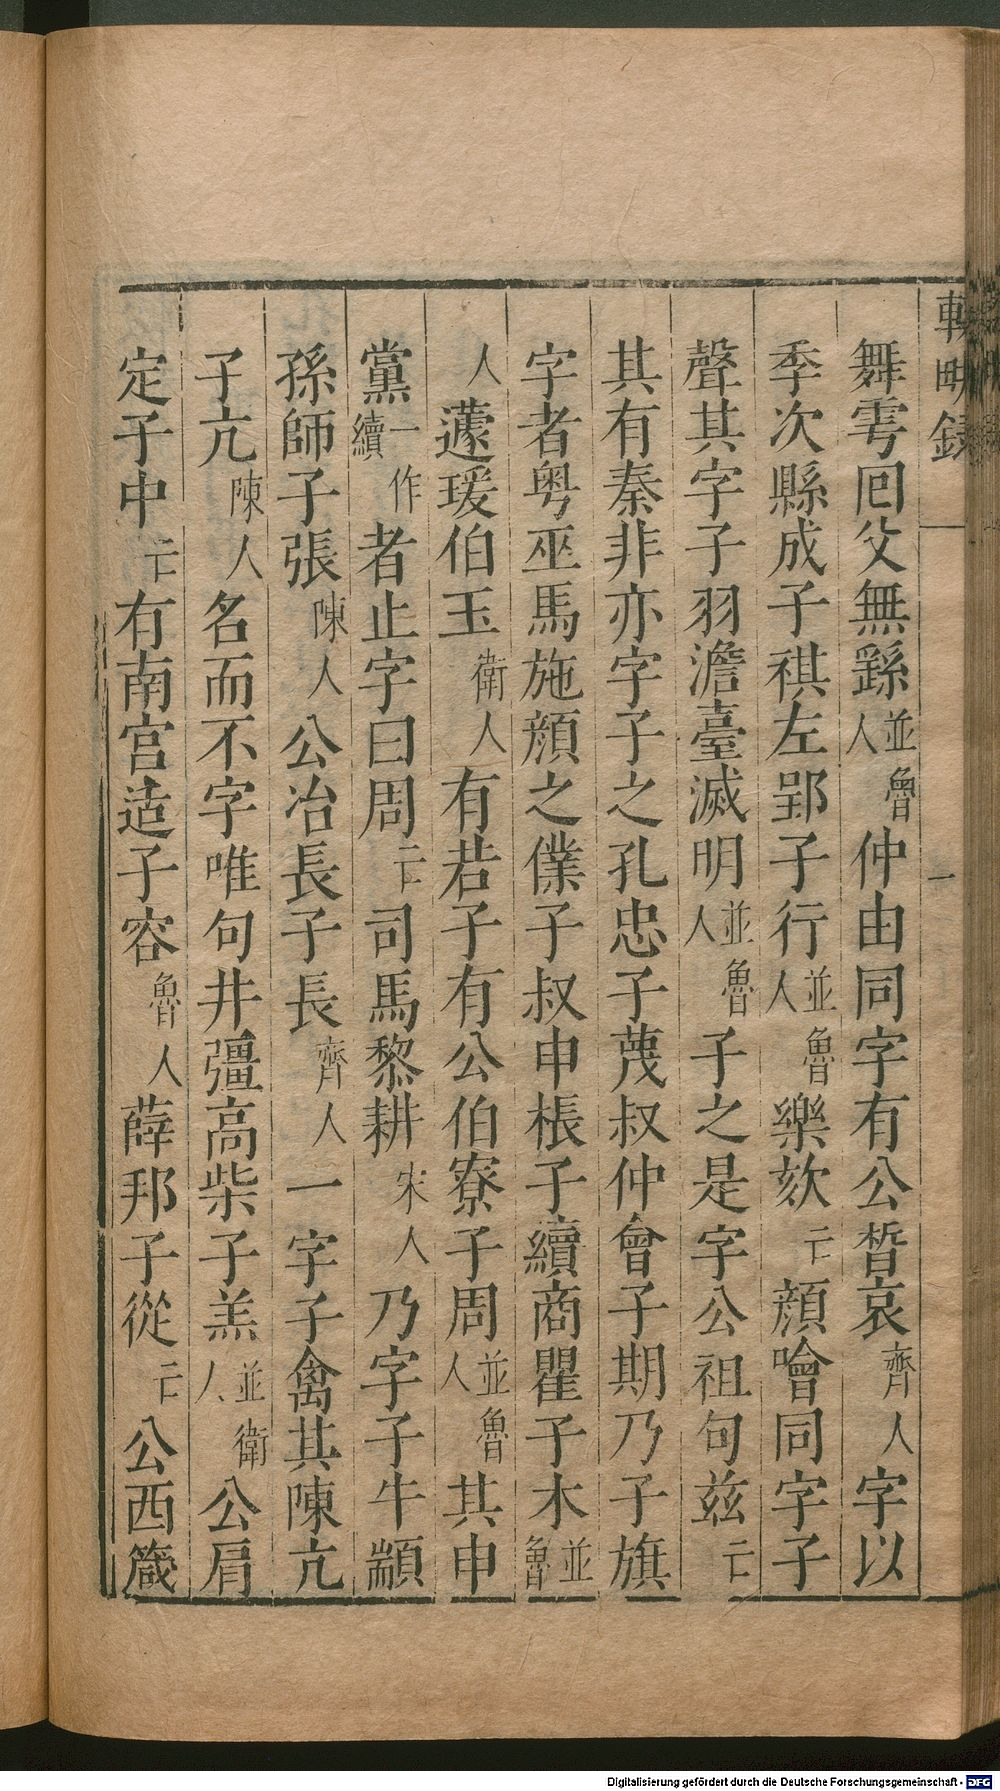 明錄
一
舞雩囘父無繇並魯人仲由同字有公晳哀齊人字以
季次縣成子祺左郢子行並魯人樂欬二亡顏噲同字子
聲其字子羽澹臺滅明並魯人子之是字公祖句兹二亡
其有秦非亦字子之孔忠子蔑叔仲會子期乃子旗
字者粤巫馬施顏之僕子叔申棖子續商瞿子木並魯
人蘧瑗伯玉衛人有若子有公伯寮子周並魯人其申
黨一作續者止字曰周二亡司馬黎耕宋人乃字子牛顓
孫師子張陳人公冶長子長齊人一字子禽其陳亢
子亢陳人名而不字唯句井彊高柴子羔並衛人公肩
定子中二亡有南宮适子容魯人薛邦子從二亡公西箴
Digitalisierung gefördert durch die Deutsche Forschungsgemeinschaft - DFG